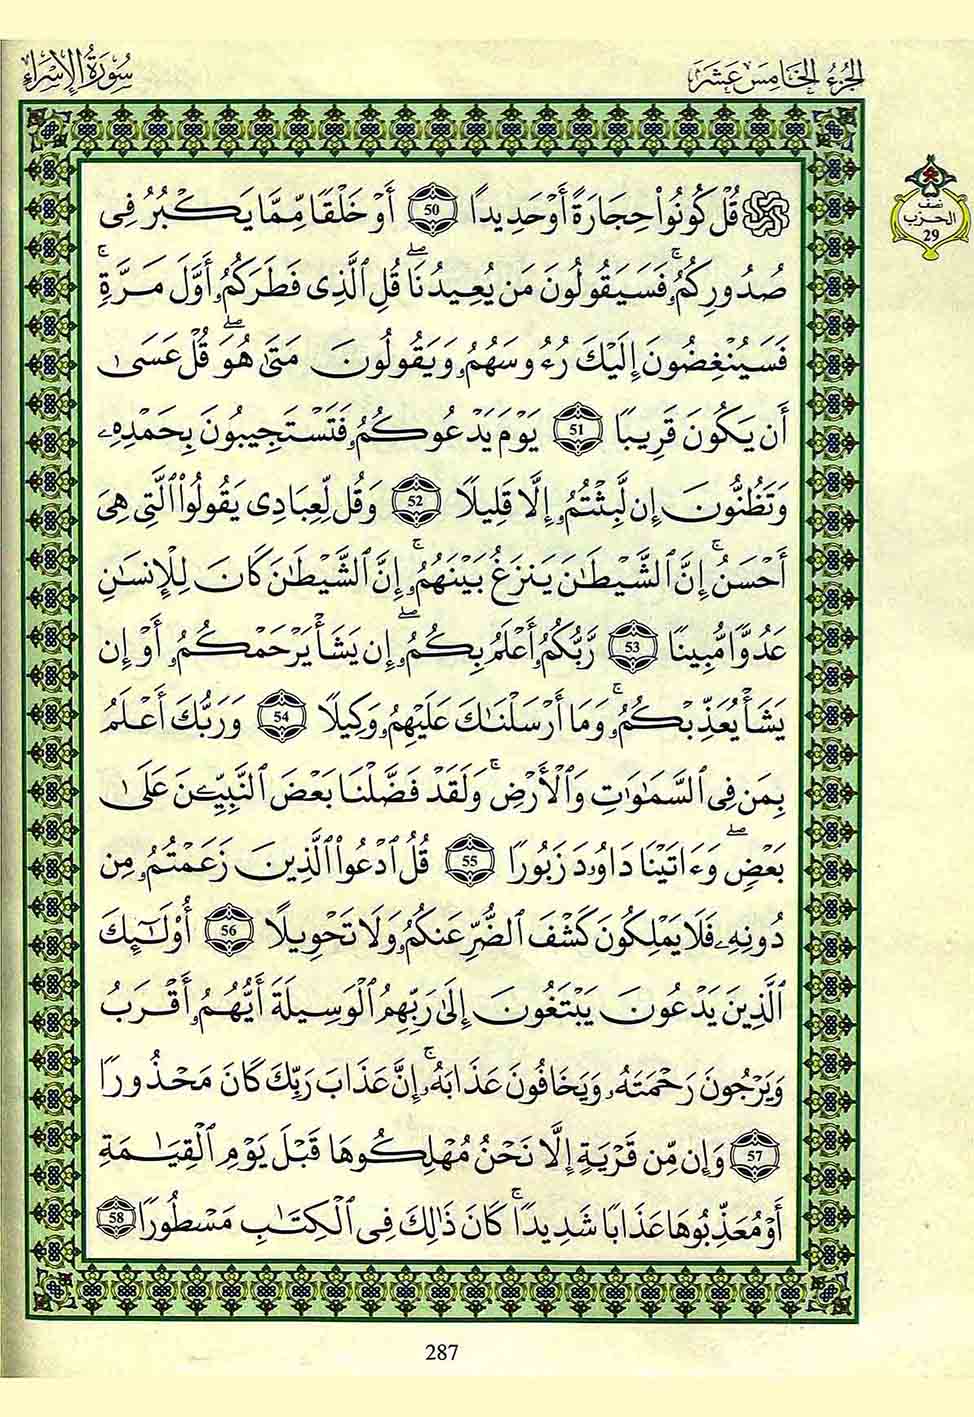 الجزء الخامس عشر
سورة الإسراء
۞ قُلْ كُونُواْ حِجَارَةً أَوْ حَدِيدًا 50 أَوْ خَلْقًا مِّمَّا يَكْبُرُ فِى
صُدُورِكُمُۥۚ فَسَيَقُولُونَ مَن يُعِيدُنَاۖ قُلِ ٱلَّذِى فَطَرَكُمُۥٓ أَوَّلَ مَرَّةٍۚ
فَسَيُنْغِضُونَ إِلَيْكَ رُءُوسَهُمُۥ وَيَقُولُونَ مَتَىٰ هُوَۖ قُلْ عَسَىٰ
أَن يَكُونَ قَرِيبًا 51 يَوْمَ يَدْعُوكُمُۥ فَتَسْتَجِيبُونَ بِحَمْدِهِۦ
وَتَظُنُّونَ إِن لَّبِثْتُمُۥٓ إِلَّا قَلِيلًا 52 وَقُل لِّعِبَادِى يَقُولُواْ ٱلَّتِى هِىَ
أَحْسَنُۚ إِنَّ ٱلشَّيْطَٰنَ يَنزَغُ بَيْنَهُمُۥٓۚ إِنَّ ٱلشَّيْطَٰنَ كَانَ لِلْإِنسَٰنِ
عَدُوًّا مُّبِينًا 53 رَّبُّكُمُۥٓ أَعْلَمُ بِكُمُۥٓۖ إِن يَشَأْ يَرْحَمْكُمُۥٓ أَوْ إِن
يَشَأْ يُعَذِّبْكُمُۥۚ وَمَا أَرْسَلْنَٰكَ عَلَيْهِمُۥ وَكِيلًا 54 وَرَبُّكَ أَعْلَمُ
بِمَن فِى ٱلسَّمَٰوَٰتِ وَٱلْأَرْضِۚ وَلَقَدْ فَضَّلْنَا بَعْضَ ٱلنَّبِيِّـۧنَ عَلَىٰ
بَعْضٍۖ وَءَاتَيْنَا دَاوُۥدَ زَبُورًا 55 قُلُ ٱدْعُواْ ٱلَّذِينَ زَعَمْتُمُۥ مِن
دُونِهِۦ فَلَا يَمْلِكُونَ كَشْفَ ٱلضُّرِّ عَنكُمُۥ وَلَا تَحْوِيلًا 56 أُوْلَٰٓئِكَ
ٱلَّذِينَ يَدْعُونَ يَبْتَغُونَ إِلَىٰ رَبِّهِمُ ٱلْوَسِيلَةَ أَيُّهُمُۥٓ أَقْرَبُ
وَيَرْجُونَ رَحْمَتَهُۥ وَيَخَافُونَ عَذَابَهُۥٓۚ إِنَّ عَذَابَ رَبِّكَ كَانَ مَحْذُورًا
57 وَإِن مِّن قَرْيَةٍ إِلَّا نَحْنُ مُهْلِكُوهَا قَبْلَ يَوْمِ ٱلْقِيَٰمَةِ
أَوْ مُعَذِّبُوهَا عَذَابًا شَدِيدًاۚ كَانَ ذَٰلِكَ فِى ٱلْكِتَٰبِ مَسْطُورًا 58
نصف
الحزب
29
287